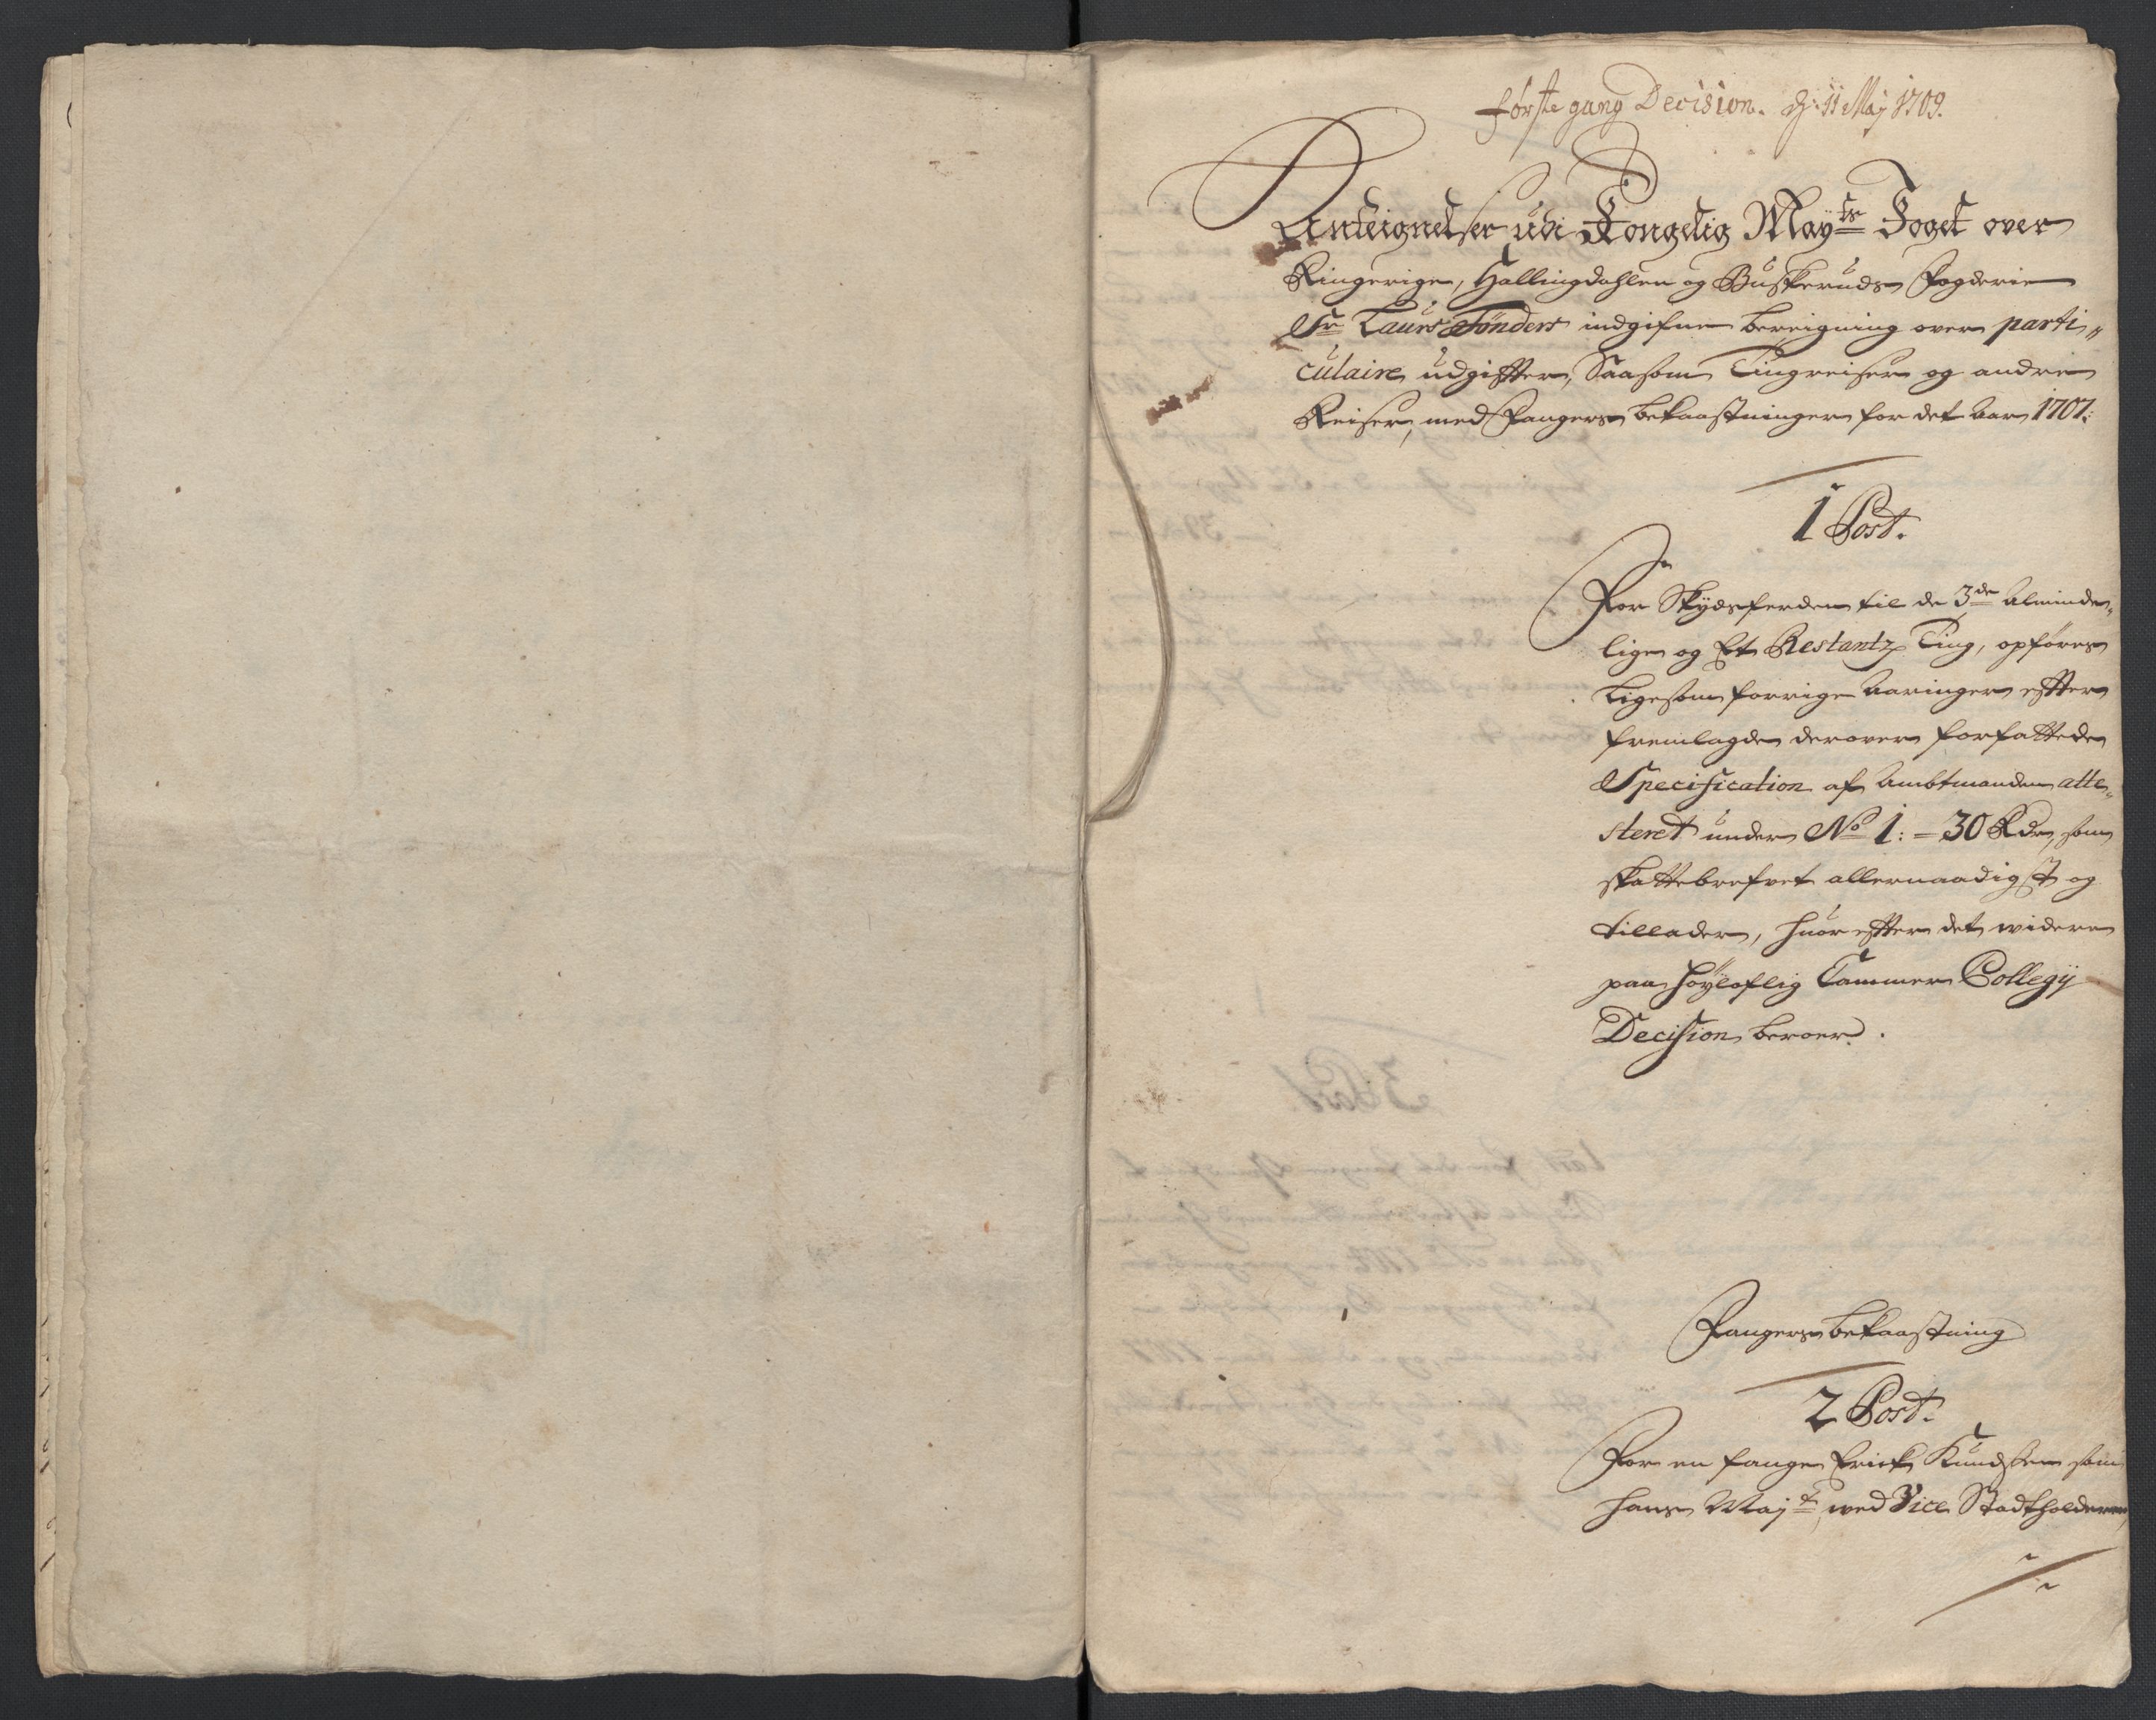 første gang Decision. d: 11 Maj 1709.
Anteignelser udi Kongelig Maÿts Foget over
Ringerige, Hallingdahlen og Buskeruds Fogderie
Sr Laurs Tønders indgifne bereigning over parti„
culaire udgiffter, Saasom Tingreiser og andre
Reiser, med Fangers bekaastninger for det Aar 1707.
1 Post.
For Skydsferden til de 3de Alminde„
lige og Et Restantz Ting, opføres
Ligesom forrige Aaringer effter
fremlagde derover forfattede
Specification af Ambtmanden atte„
steret under No 1: = 30 Rdr, som
skattebrefvet allernaadigst og
tillader, huor effter det widere
paa höÿloflig Cammer Collegÿ
Decision beroer.
Fangers bekaastning
2 Post.
For en fange Erick Knudssen som
hans Majt wed Vice Stadtholderen